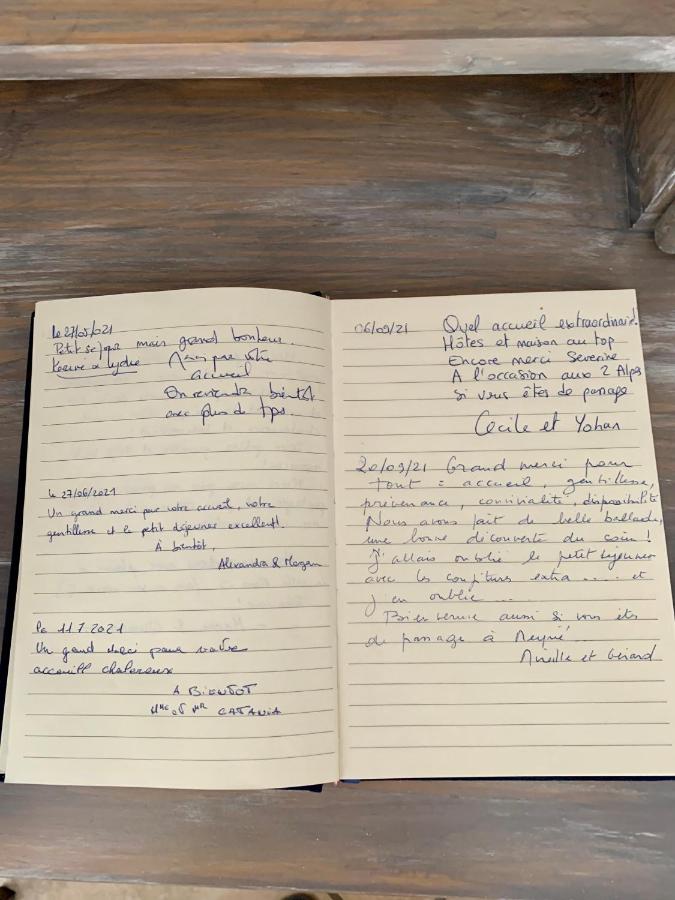 Le 27/05/021
Petit séjour mais grand bonheur
Merci pour votre
accueil
On reviendra bientôt
avec plus de tps.
Le 27/06/2021
Un grand merci pour votre accueil, votre
gentillesse et le petit déjeuner excellent!
À bientôt,
Alexandra & Morgan
Le 11.7.2021
Un grand merci pour votre
accueill chalereux
A BIENTOT
Mme et Mr CATANIA
06/09/21 Quel accueil extraordinaire!
Hôtes et maison au top
Encore merci Severine
A l'occasion aux 2 Alps
si vous êtes de passage
Cecile et Yohan
20/09/21 Grand merci pour
tout : accueil, gentillesse,
prévenance, convivialité, disponibilité
Nous avons fait de belle ballade,
une bonne découverte du coin!
J'allais oublié le petit déjeuner
avec les confitures extra .... et
j'en oublie ....
Bienvenue aussi si vous êtes
de passage à
Mireille et Gérard